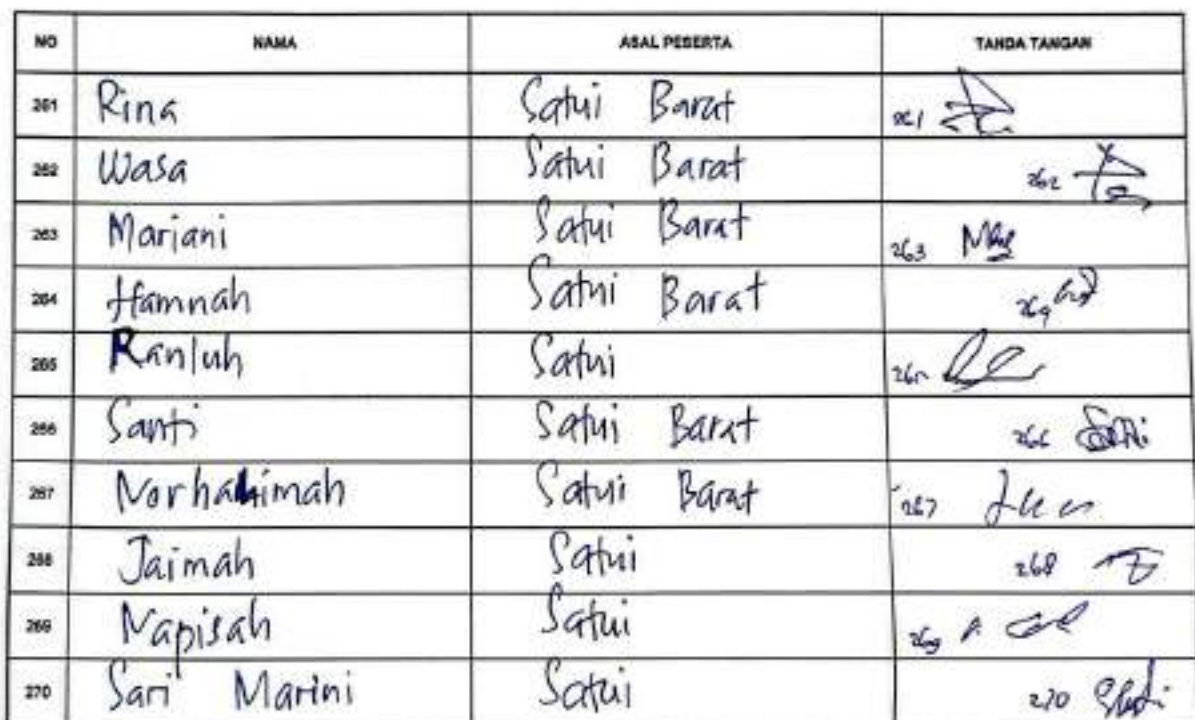 NO NAMA ASAL PESERTA TANDA TANGAN
261 Rina Satui Barat 261
262 Wasa Satui Barat 262
263 Mariani Satui Barat 263
264 Hamnah Satui Barat 264
265 Ranluh Satui 265
266 Santi Satui Barat 266
267 Norhalimah Satui Barat 267
268 Jaimah Satui 268
269 Napisah Satui 269
270 Sari Marini Satui 270